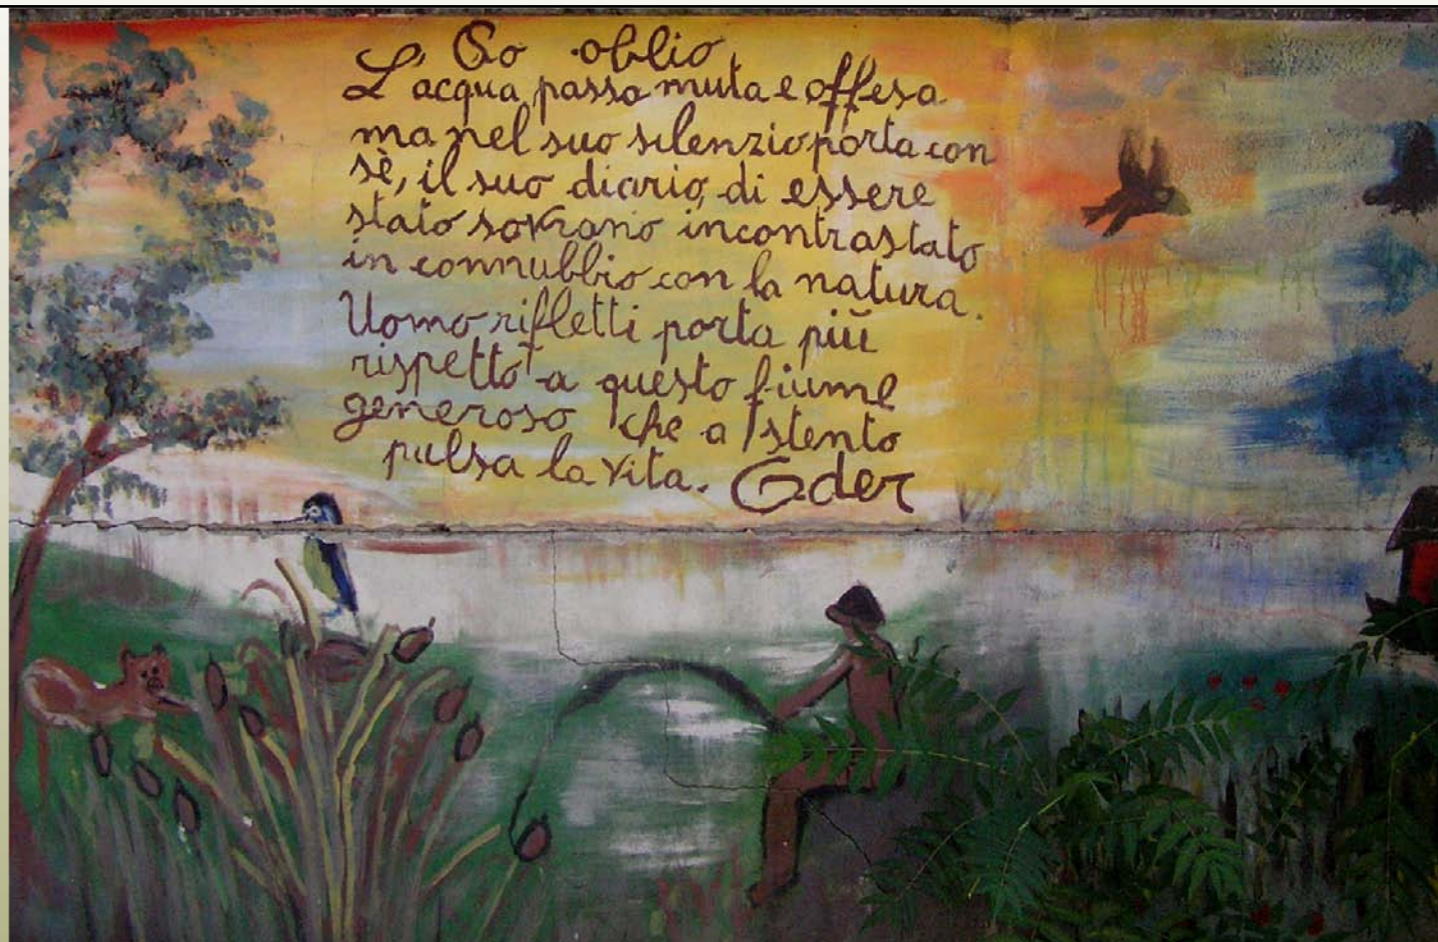 oblio
L'acqua passa muta e offesa
ma nel suo silenzio porta con
sè, il suo diario, di essere
stato sovrano incontrastato
in connubbio con la natura.
Uomo rifletti porta più
rispetto a questo fiume
generoso che a stento
pulsa la vita. Eder